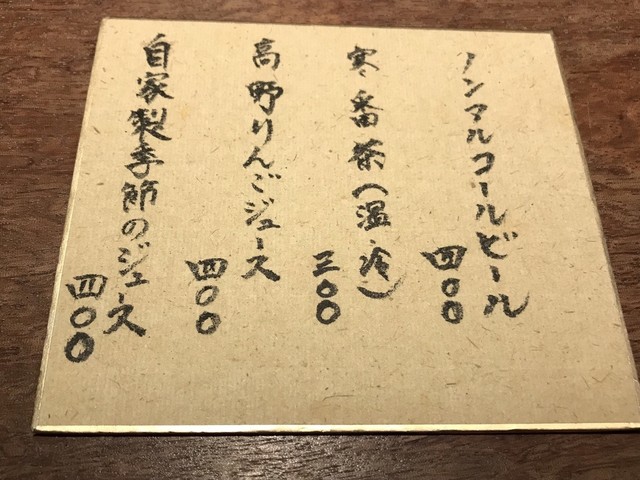 ノンアルコールビール
四〇〇
寒番茶(温・冷)
三〇〇
高野りんごジュース
四〇〇
自家製季節のジュース
四〇〇